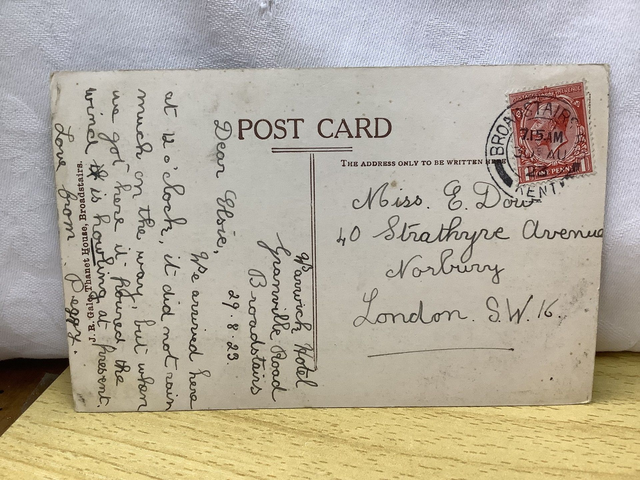 POST CARD
THE ADDRESS ONLY TO BE WRITTEN HERE
BROADSTAIRS
9.15 AM
30 AU
23
KENT
ONE PENNY
Miss. E. Dow
40 Strathyre Avenue
Norbury
London. S.W. 16.
Warwick Hotel
Granville Road
Broadstairs
29.8.23.
Dear Elsie,
We arrived here
at 12 o'clock, it did not rain
much on the way, but when
we got here it poured. the
wind is howling at present.
Love from Peggy.
J. R. Gale, Thanet House, Broadstairs.